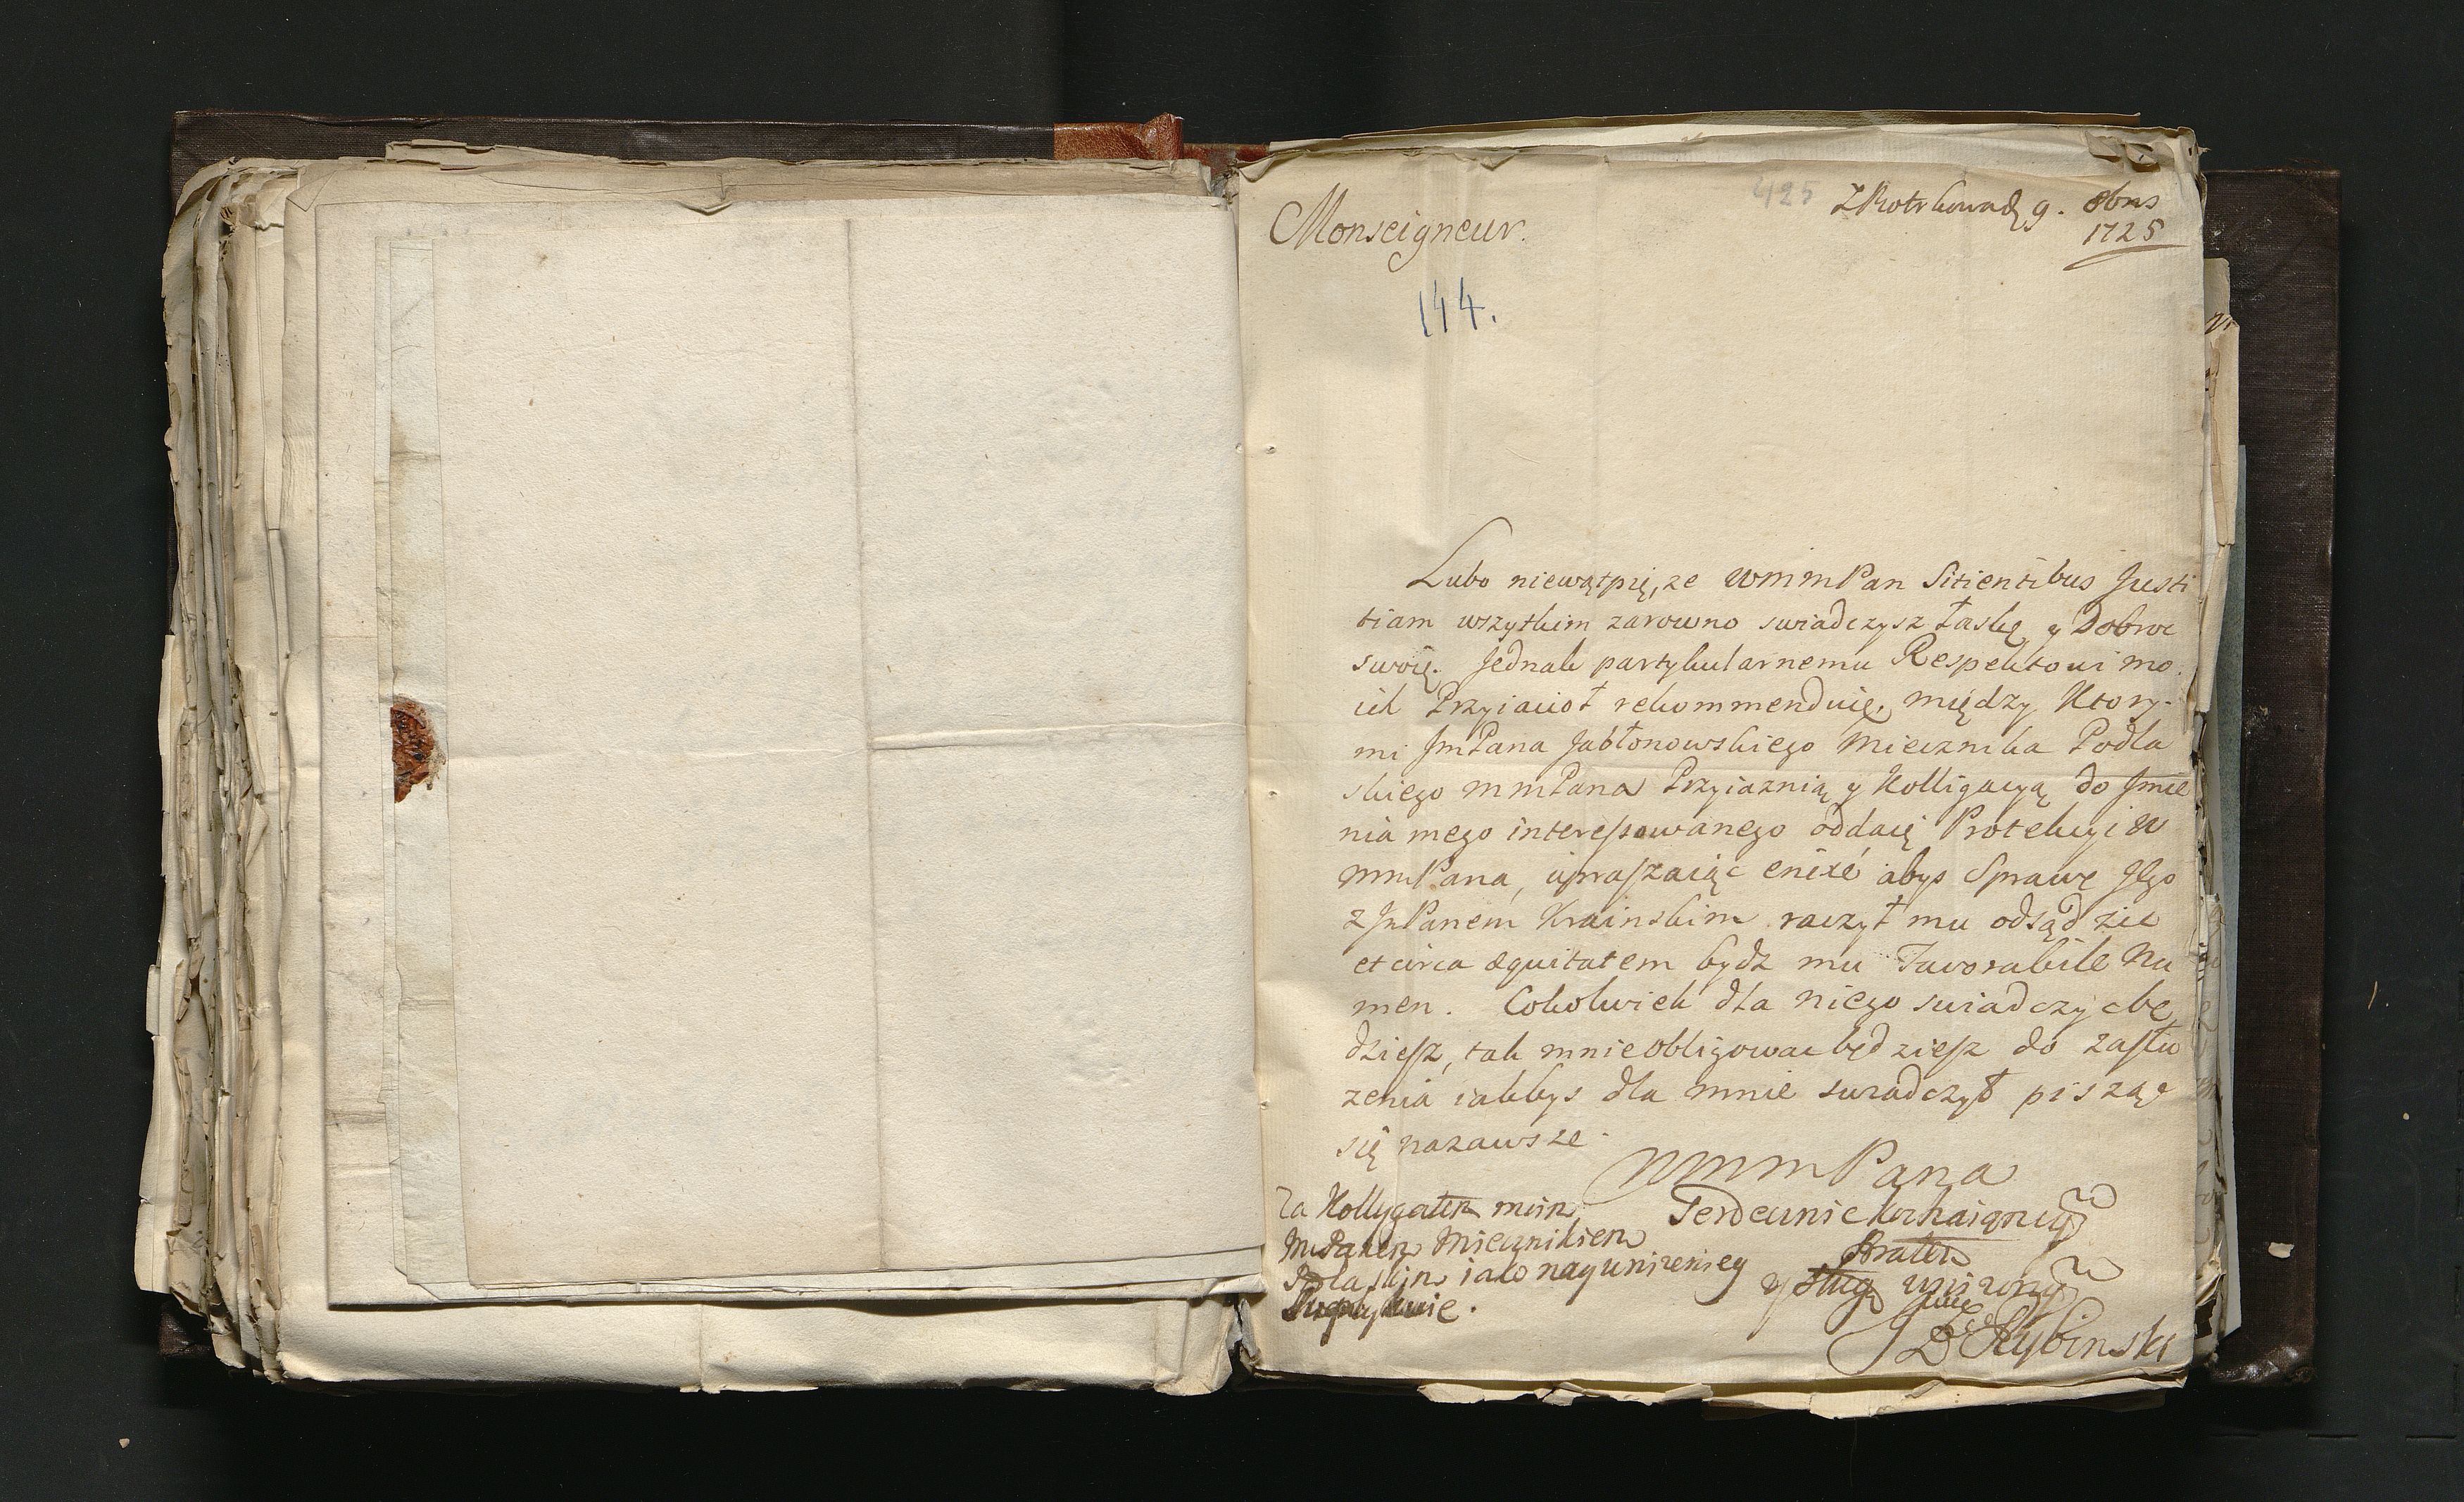 425
Z Piotrkowa d 9. 8bris
1725
Monseigneur.
144.
Lubo niewątpię, ze WMMPan Sitientibus Justi
tiam wszytkim zarowno swiadczysz łaskę y Dobroc
swoię. Jednak partykularnemu Respektowi mo
ich Przyiacioł rekommenduię, między Ktory-
mi JmPana Jabłonowskiego Miecznika Podla
skiego MMPana Przyiaznią y Kolligacyą do Jmie
nia mego interessowanego oddaię Protekcyi W
MMPana, upraszaiąc enixé abys Sprawę Jego
z JmPanem Krainskim raczył mu odsądzic
et circa æquitatem bydz mu Favorabile Nu
men. Cokolwiek dla niego swiadczyc bę
dziesz, tak mnie obligowac będziesz do zasłu
zenia iakbys dla mnie swiadczył pisząc
się nazawsze.
WMMPana
Serdecznie kochaiący
Bratem
y sługą unizony
Rybinski
Za Kollygatem moim
MPanem Miecznikiem
Podlaskim iako nayunizeniey